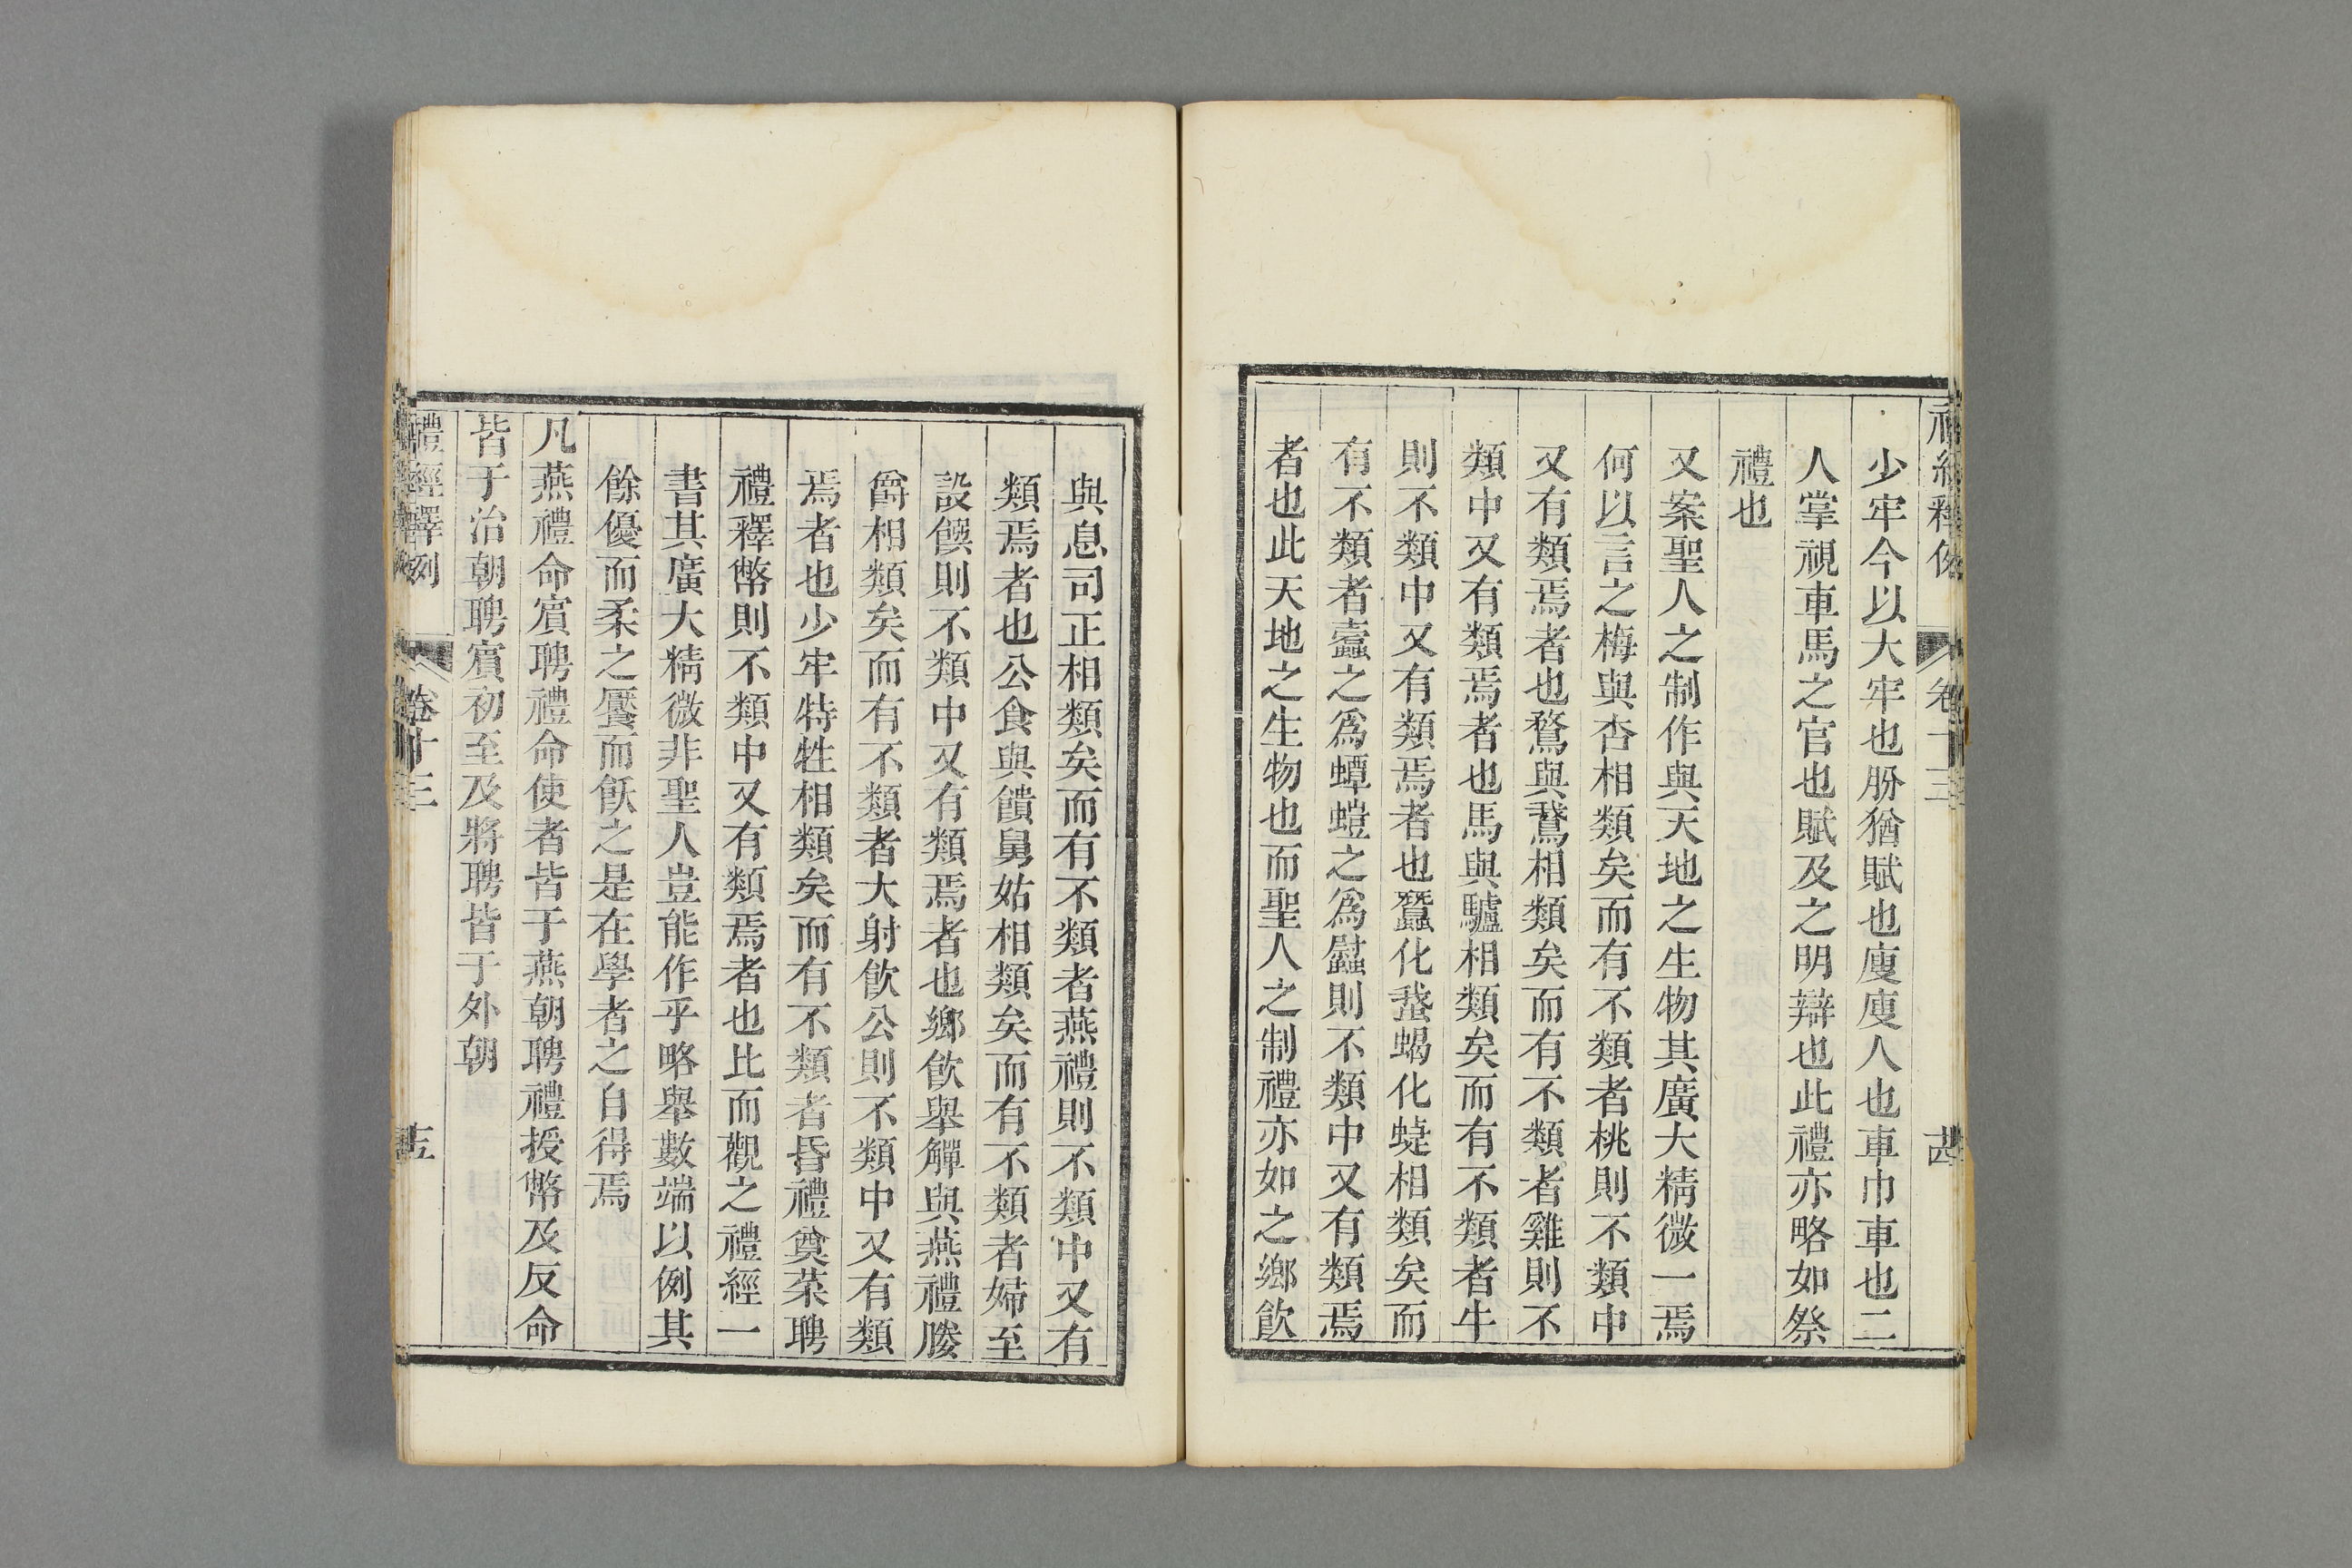 禮經釋例 卷十三 十四
少牢今以大牢也肦猶賦也廋廋人也車巾車也二
人掌視車馬之官也賦及之明辯也此禮亦略如祭
禮也
又案聖人之制作與天地之生物其廣大精微一焉
何以言之梅與杏相類矣而有不類者桃則不類中
又有類焉者也鶩與鵞相類矣而有不類者雞則不
類中又有類焉者也馬與驢相類矣而有不類者牛
則不類中又有類焉者也蠶化蛬蝎化蜨相類矣而
有不類者蠹之爲蟫螘之爲䘐則不類中又有類焉
者也此天地之生物也而聖人之制禮亦如之鄉飲
與息司正相類矣而有不類者燕禮則不類中又有
類焉者也公食與饋舅姑相類矣而有不類者婦至
設饌則不類中又有類焉者也鄉飲舉觶與燕禮媵
爵相類矣而有不類者大射飲公則不類中又有類
焉者也少牢特牲相類矣而有不類者昏禮奠菜聘
禮釋幣則不類中又有類焉者也比而觀之禮經一
書其廣大精微非聖人豈能作乎略舉數端以例其
餘優而柔之饜而飫之是在學者之自得焉
凡燕禮命賓聘禮命使者皆于燕朝聘禮授幣及反命
皆于治朝聘賓初至及將聘皆于外朝
禮經釋例 卷十三 十五